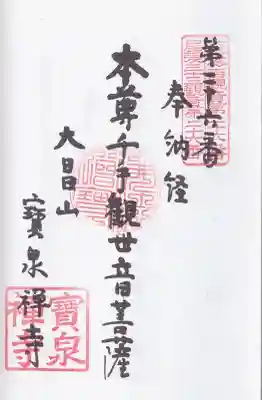 第三十六番
奉納経
本尊千手觀世音菩薩
大昌山
寶泉禅寺
寶泉
禅寺